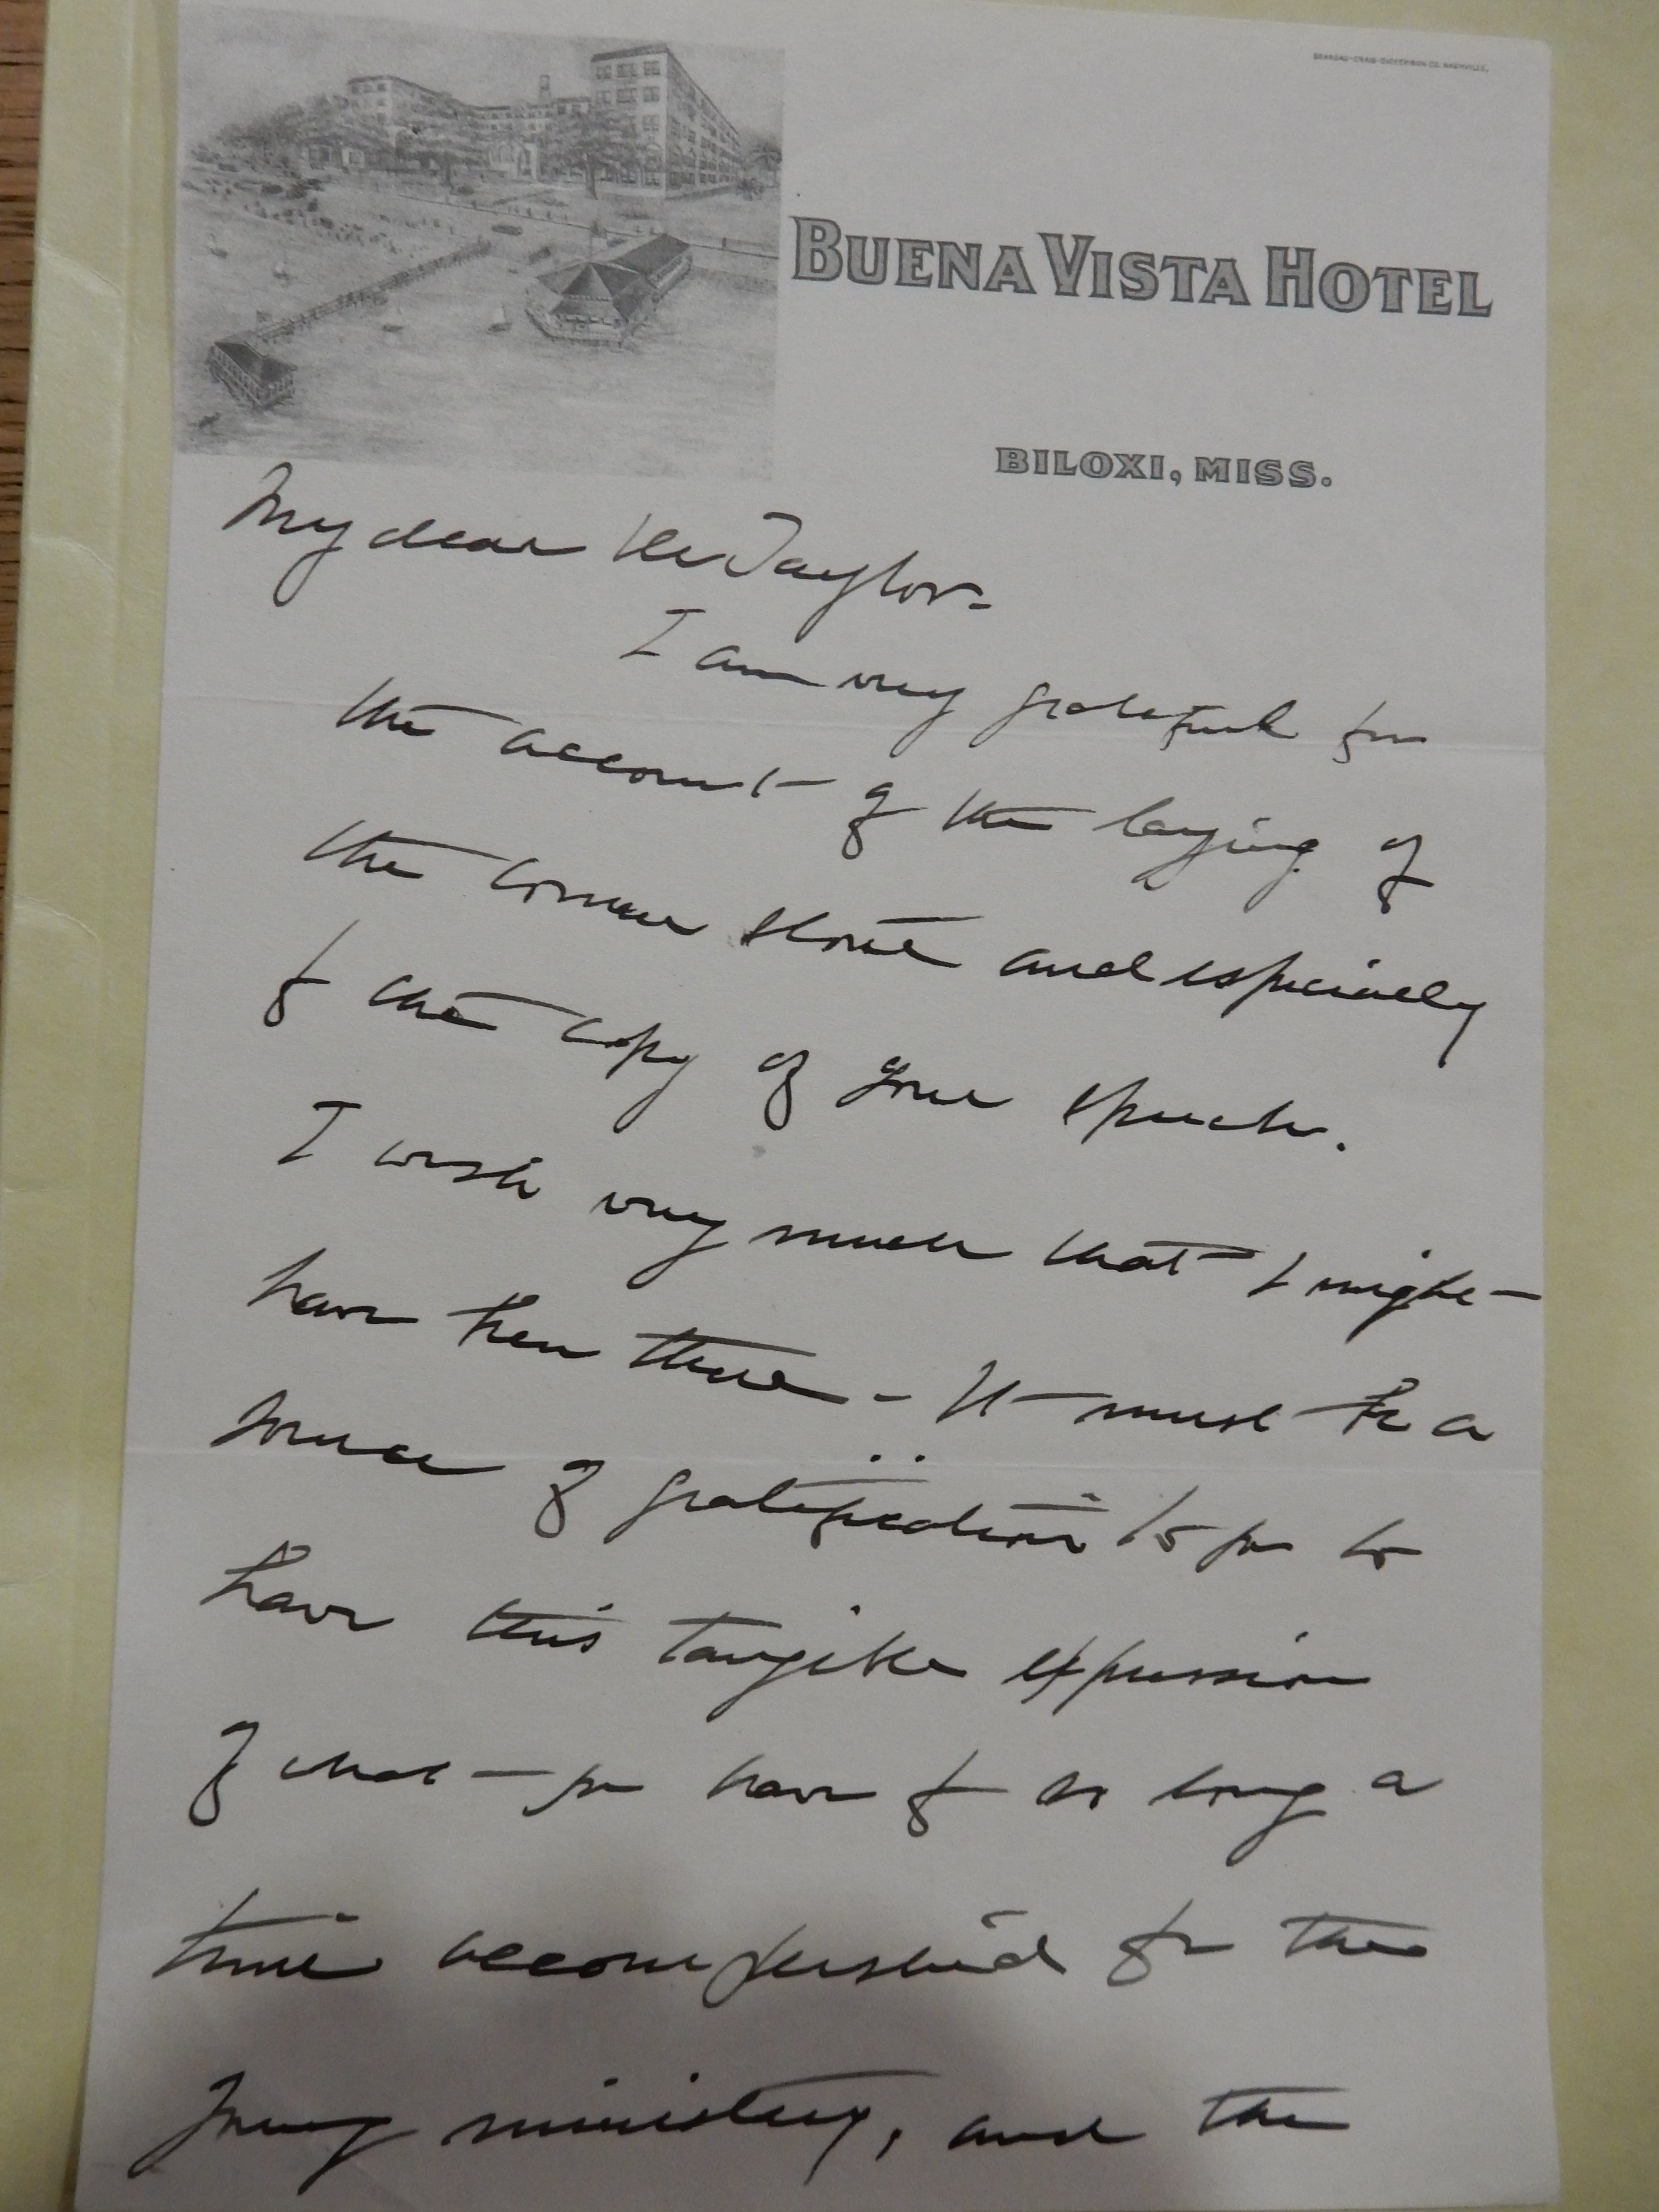 BUENA VISTA HOTEL
BILOXI, MISS.
My dear Mr Taylor-
I am very grateful for
the account of the laying of
the corner stone and especially
for the copy of your speech.
I wish very much that I might
have been there - It must be a
source of gratification to you to
have this tangible expression
of what you have for so long a
time accomplished for the
young ministry, and the